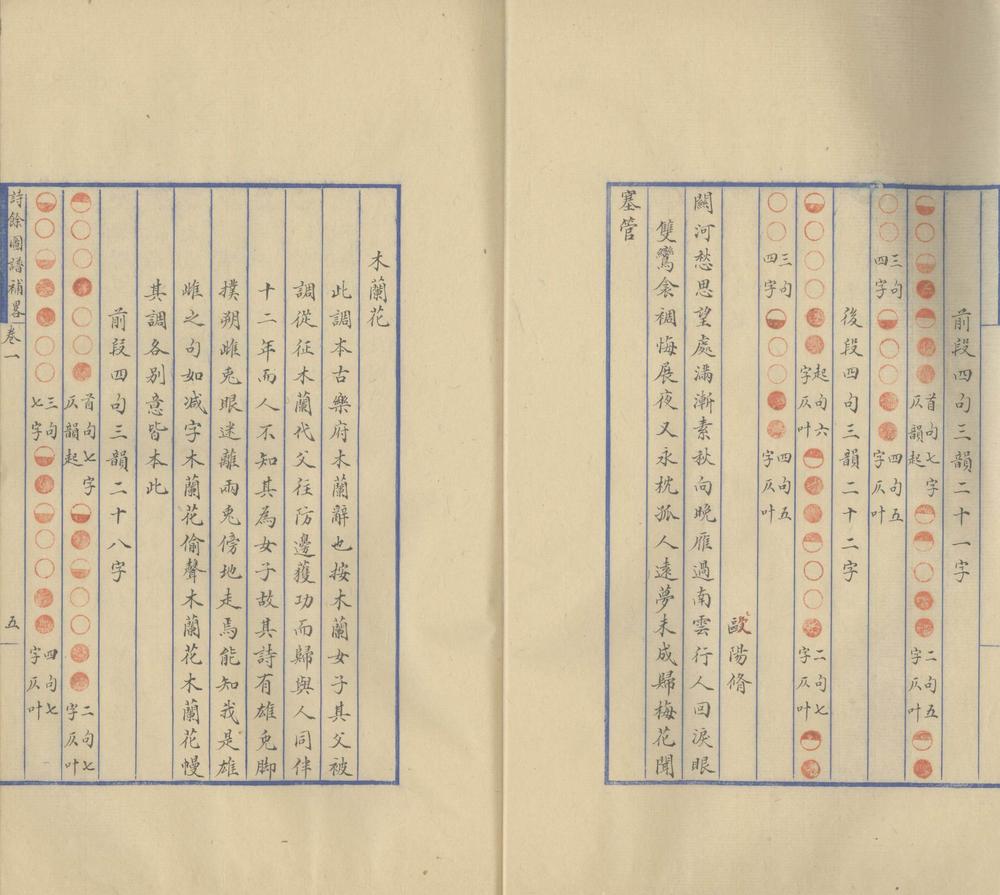 前段四句三韻二十一字
首句七字
仄韻起
二句五
字仄叶
三句
四字
四句五
字仄叶
後段四句三韻二十二字
起句六
字仄叶
二句七
字仄叶
三句
四字
四句五
字仄叶
歐陽脩
關河愁思望處滿漸素秋向晚雁過南雲行人回淚眼
雙鸞衾裯悔展夜又永枕孤人遠夢未成歸梅花聞
塞管
木蘭花
此調本古樂府木蘭辭也按木蘭女子其父被
調從征木蘭代父往防邊獲功而歸與人同伴
十二年而人不知其為女子故其詩有雄兔脚
撲朔雌兔眼迷離兩兔傍地走焉能知我是雄
雌之句如減字木蘭花偷聲木蘭花木蘭花慢
其調各別意皆本此
前段四句三韻二十八字
首句七字
仄韻起
二句七
字仄叶
三句
七字
四句七
字仄叶
詩餘圖譜補畧
卷一
五